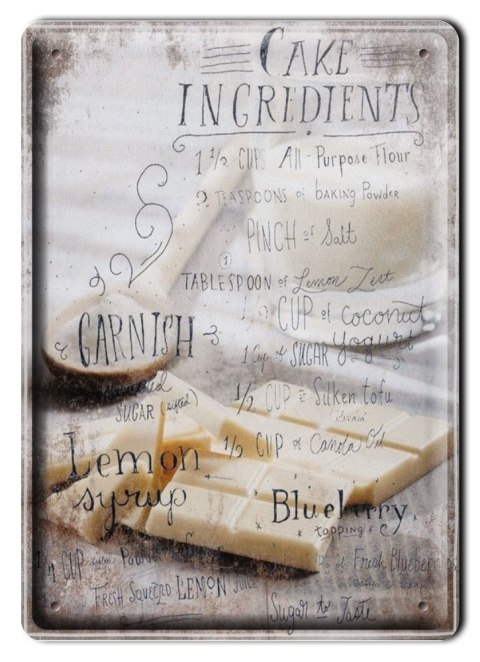 CAKE
INGREDIENTS
1 1/2 CUPS All-Purpose Flour
2 TEASPOONS of baking Powder
PINCH of Salt
1
TABLESPOON of Lemon Zest
1/2 CUP of coconut
Yogurt
GARNISH
1 Cup of SUGAR
SUGAR (sifted)
1/2 CUP Silken tofu
1/2 CUP of Canola Oil
Lemon
syrup
Blueberry
topping
1/4 CUP
FRESH Squeezed LEMON
of Fresh Blueber
Sugar to Taste